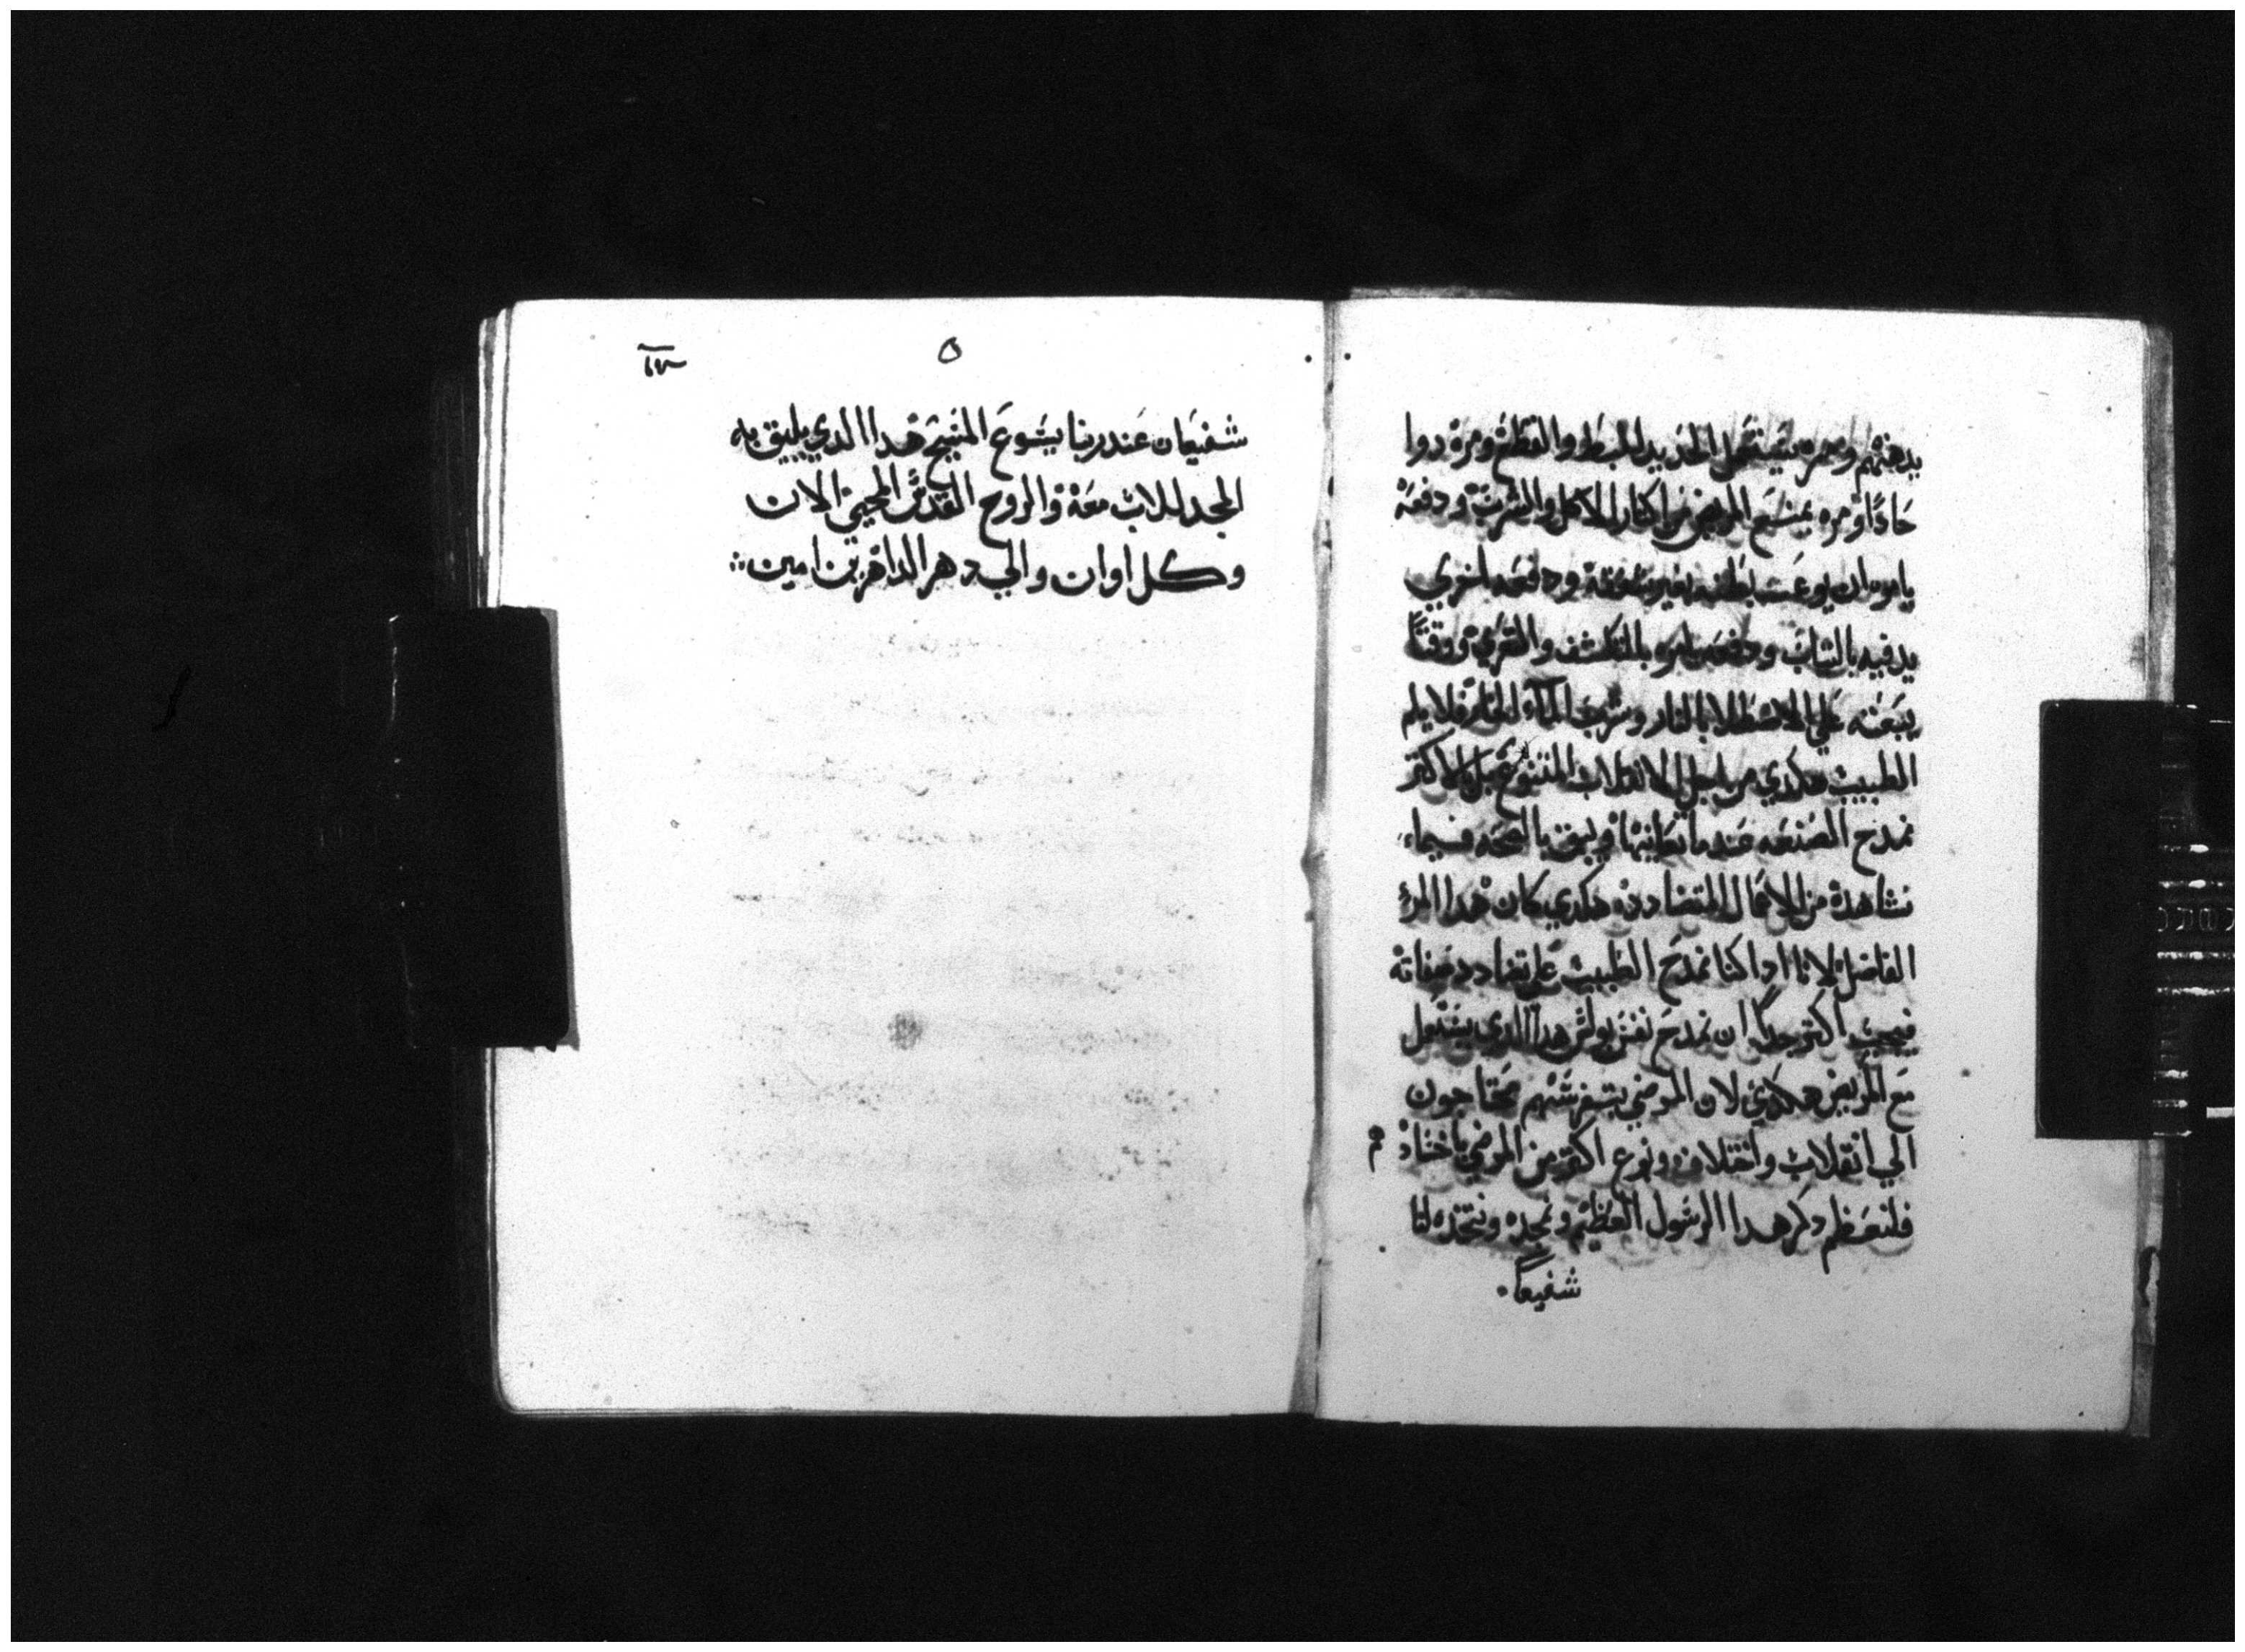 يدهنهم ومره يستعمل الحديد للبط والقطع ومره دوا
حادًا ومره يمنع المريض من اكتار الاكل والشرب ودفعه
يامره ان يوعب بطنه بغير شفقة ودفعه اخري
يدفيه بالتياب ودفعه يامره بالتكشف والتعري ووقتًا
يبعته علي الاصطلا بالنار وشرب المآء فلا يلم
الطبيب هكدي من اجل الانقلاب المتنوع بل بالاكتر
نمدح الصنعه عندما نعاينها فيما
نشاهده من الاعمال المتضادده هكدي كان هدا المرؤ
الفاضل لاننا ادا كنا نمدح الطبيب علي تضادد صفاته
فيجب اكتر جدًا ان نمدح نفس بولس هدا الدي يستعمل
مع المريض هكدي لان المرضي بنفسهم محتاجون
الي انقلاب واختلاف ونوع اكتر من المرضي باجسادهم
فلنعظم دكر هدا الرسول العظيم ونمجده ونتخذه لنا
شفيعًا
٥
شفيعًا عند ربنا يسوع المسيح هدا الدي يليق به
المجد للاب معه والروح القدس المحيي الان
وكل اوان والي دهر الداهرين امين